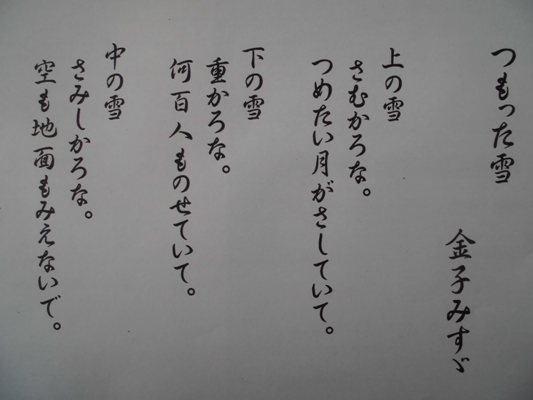 つもった雪
金子みすゞ
上の雪
さむかろな。
つめたい月がさしていて。
下の雪
重かろな。
何百人ものせていて。
中の雪
さみしかろな。
空も地面もみえないで。